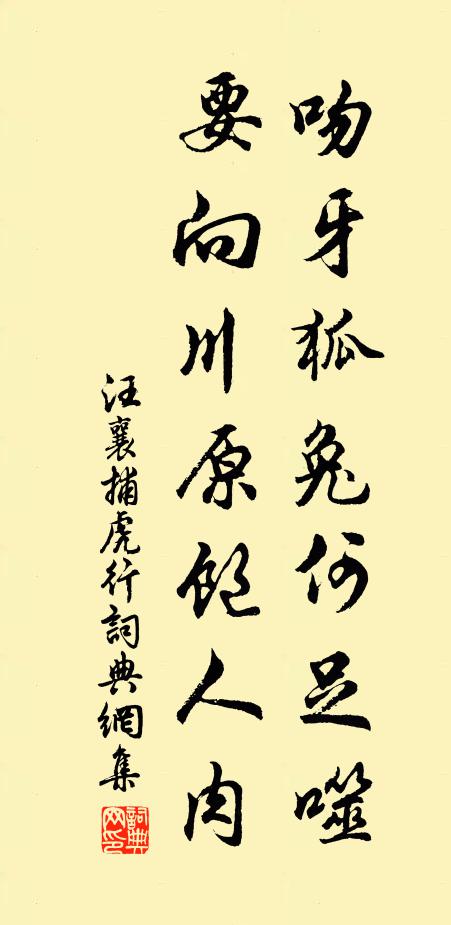 吻牙狐兔何足噬
要向川原飽人肉
汪襄捕虎行詞典網集
詞典網印